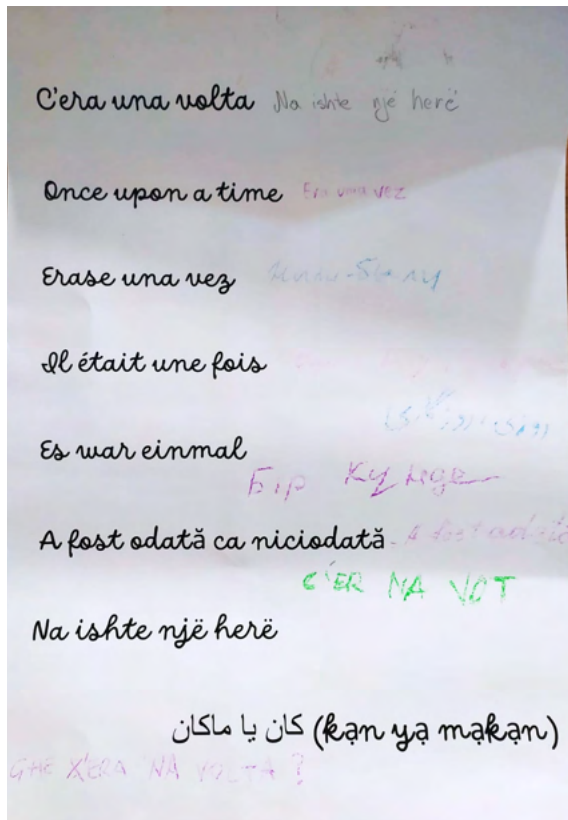 C'era una volta Na ishte një herë
Once upon a time Era uma vez
Erase una vez
Il était une fois
Es war einmal
Бір күнде
A fost odată ca niciodată A fost odată
C'ER NA VOT
Na ishte një herë
كان يا ماكان (kạn yạ mạkạn)
GHE X'ERA NA VOLTA ?